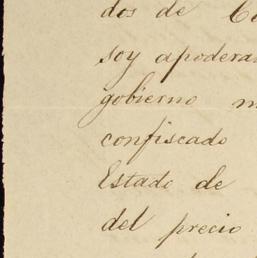 dos de
soy apodera
gobierno
confiscado
Estado de
del precio